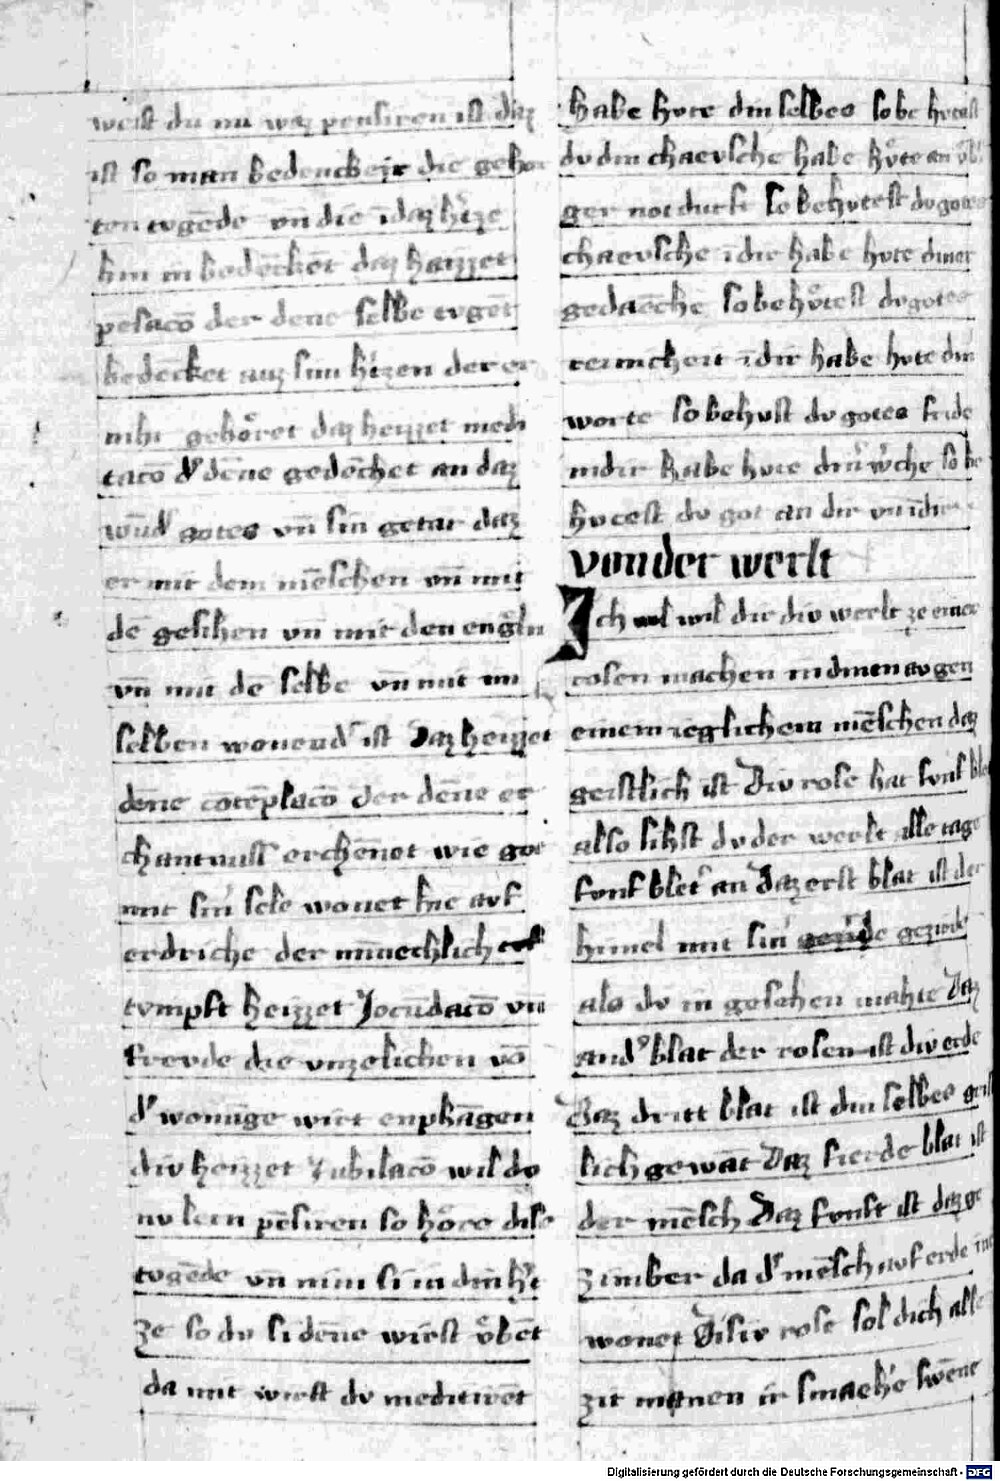 weist du nu waz pensiren ist daz
ist so man bedencket die gehor
ten tvgēde vn̄ die ī daz h'tze
hin in bedēcket daz haizzet
pesacō der dēne selbe tvgēt
bedēcket auz sim h'tzen der er
nihi gehoͤret daz heizzet medi
taco d' dēne gedēchet an daz
wūd' gotes vn̄ sin getat daz
er mit dem mēschen vn̄ mit
dē gesihen vn̄ mit den engl̄n
vn̄ mit dē selbe vn̄ mit im
selben wonend' ist Daz heizzet
dēne cōtēplacō der dēne er
chantnuss erchēnet wie got
mit sin' sele wonet hie avf
erdriche der minnechlich
tvmpft heizzet Jocūdacō vn̄
frevde die vnzelichen vō
d' wonūge wirt enphāgen
div heizzet Jubilacō wil dv
nv lern pēsiren so hoͤre dise
tvgēde vn̄ nim si in din h't
ze so dv si dēne wirst vͤbēt
da mit wirst dv meditirēt
habe hvte din selbes so be hvtest
dv din chaevsche habe hvͤte an vͤb
ger notdurft so behvtest dv gotes
chaevsche ī dir habe hvte diner
gedaēche so behvͤtest dv gotes
reinicheit ī dir habe hvte din'
worte so behvst dv gotes fride
in dir habe hvte din' w'che so be
hvtest dv got an dir vn̄ ī dir
von der werlt
Ich wil dir div werlt ze einer
rosen machen in dinen avgen
einem ieglichem mēschen daz
geistlich ist Div rose hat fvnf blet
also sihst dv der werlt alle tage
fvnf blet' an Daz erst blat ist der
himel mit sin' gezirde gezirde
als dv in gesehen maht Daz
and' blat der rosen ist div erde
Daz dritt blat ist din selbes geist
lich gewāt Daz fierde blat ist
der mēsch Daz fvnft ist daz ge
zimber da d' mēsch avf erde inne
wonet Disiv rose sol dich alle
zit manen ir smaehe swēne